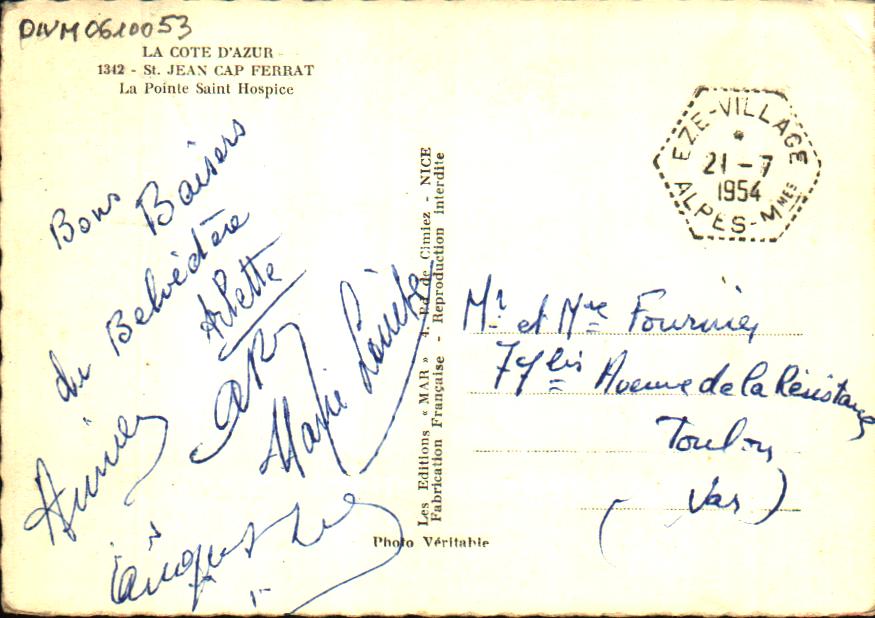 DIVM0610053
LA COTE D'AZUR
1342 - St. JEAN CAP FERRAT
La Pointe Saint Hospice
Bons Baisers
du Belvédère
Arlette
Marie Louise
Les Editions « MAR » 4, Bd de Cimiez - NICE
Fabrication Française - Reproduction interdite
Photo Véritable
EZE-VILLAGE
*
21-7
1954
ALPES-Mmes
Mr et Mme Fournier
bis Avenue de la Résistance
Toulon
(Var)